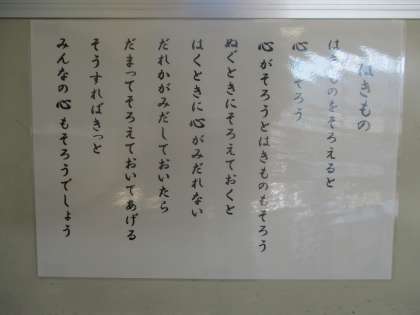 はきもの
はきものをそろえると
心もそろう
心がそろうとはきものもそろう
ぬぐときにそろえておくと
はくときに心がみだれない
だれかがみだしておいたら
だまってそろえておいてあげる
そうすればきっと
みんなの心もそろうでしょう